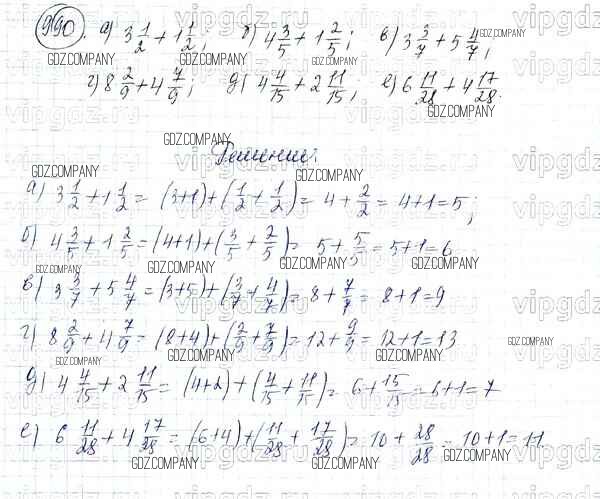 990. а) 3 1/2 + 1 1/2; б) 4 3/5 + 1 2/5; в) 3 3/7 + 5 4/7;
г) 8 2/9 + 4 7/9; д) 4 4/15 + 2 11/15; е) 6 11/28 + 4 17/28.
Решение:
а) 3 1/2 + 1 1/2 = (3+1) + (1/2 + 1/2) = 4 + 2/2 = 4+1 = 5;
б) 4 3/5 + 1 2/5 = (4+1) + (3/5 + 2/5) = 5 + 5/5 = 5+1 = 6
в) 3 3/7 + 5 4/7 = (3+5) + (3/7 + 4/7) = 8 + 7/7 = 8+1 = 9
г) 8 2/9 + 4 7/9 = (8+4) + (2/9 + 7/9) = 12 + 9/9 = 12+1 = 13
д) 4 4/15 + 2 11/15 = (4+2) + (4/15 + 11/15) = 6 + 15/15 = 6+1 = 7
е) 6 11/28 + 4 17/28 = (6+4) + (11/28 + 17/28) = 10 + 28/28 = 10+1 = 11
GDZ.COMPANY
vipgdz.ru